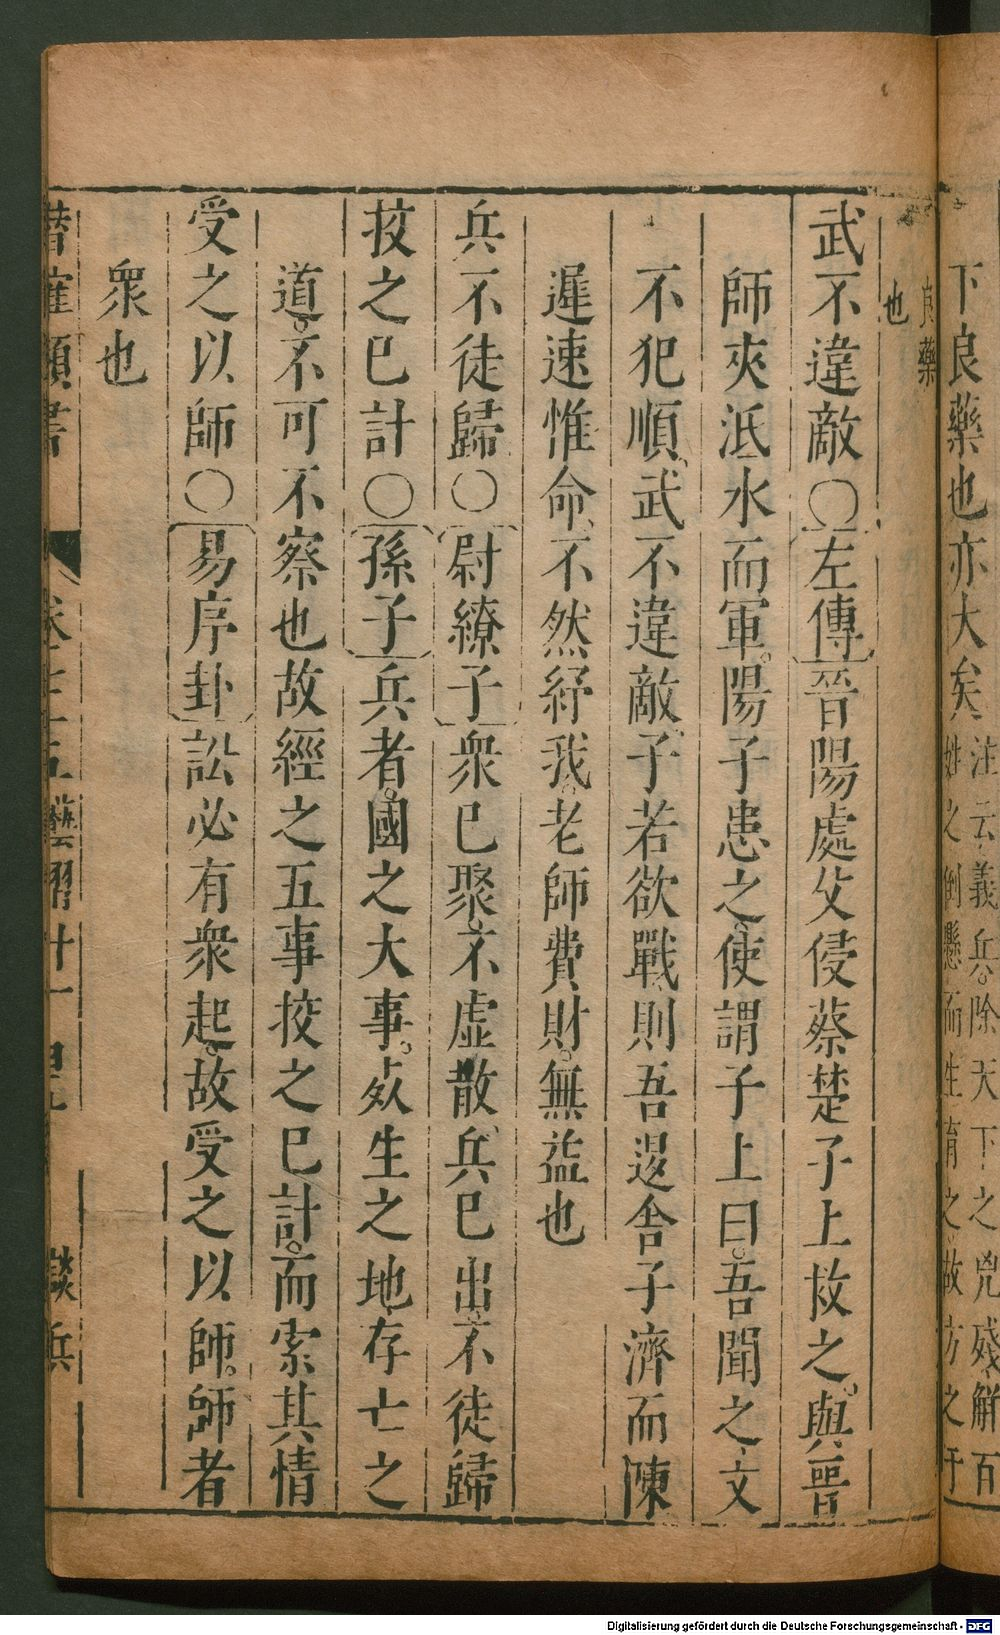 下良藥也亦大矣注云義兵除天下之兇殘解百
姓之倒懸而生育之故方之于
良藥
也
武不違敵○左傳晉陽處父侵蔡楚子上救之與晉
師夾泜水而軍陽子患之使謂子上曰吾聞之文
不犯順武不違敵子若欲戰則吾退舍子濟而陳
遲速惟命不然紓我老師費財無益也
兵不徒歸○尉繚子衆已聚不虛散兵已出不徒歸
挍之已計○孫子兵者國之大事死生之地存亡之
道不可不察也故經之五事挍之已計而索其情
受之以師○易序卦訟必有衆起故受之以師師者
衆也
類書 卷三十五藝習廿一 談兵
Digitalisierung gefördert durch die Deutsche Forschungsgemeinschaft - DFG